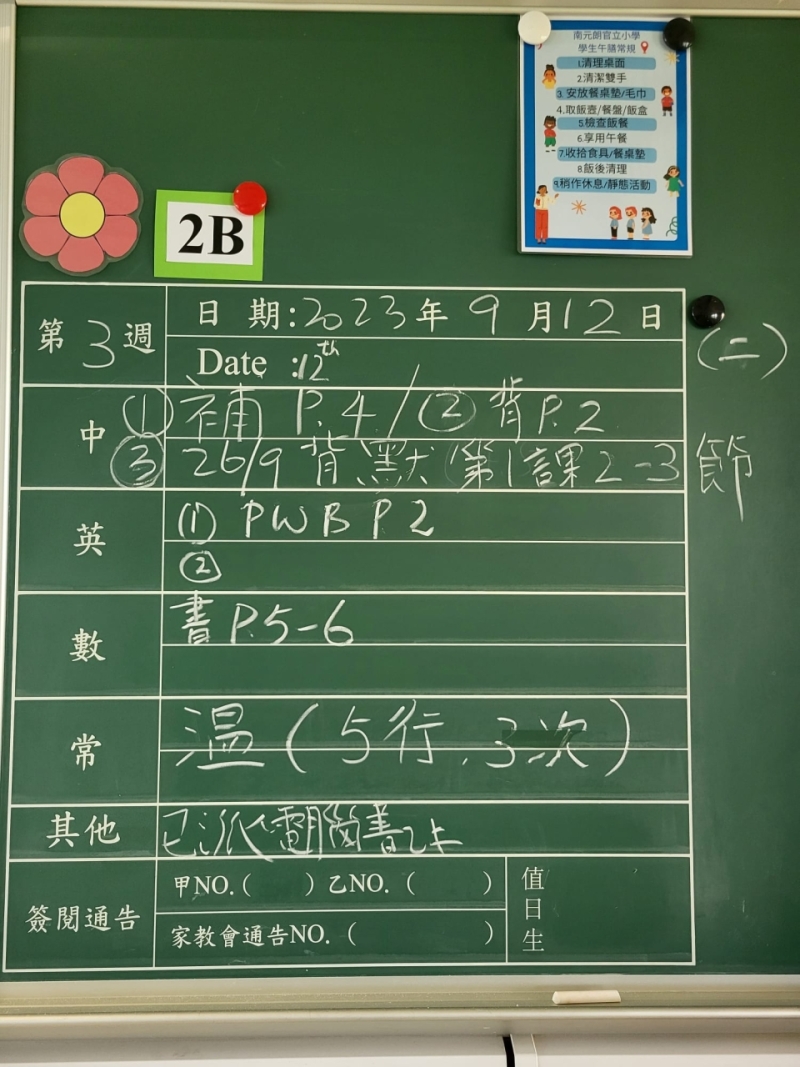 南元朗官立小學
學生午膳常規
1.清理桌面
2.清潔雙手
3. 安放餐桌墊/毛巾
4.取飯壺/餐盤/飯盒
5.檢查飯餐
6.享用午餐
7.收拾食具/餐桌墊
8.飯後清理
9.稍作休息/靜態活動
2B
第3週
日 期:2023年9月12日 (二)
Date :12th
中
① 補 P.4 / ② 背 P.2
③ 26/9 背默 (第1課2-3節
英
(1) PWB P2
②
數
書 P.5-6
常
溫(5行.3次)
其他
已派電腦書
簽閱通告
甲NO.( ) 乙NO.( )
家教會通告NO.( )
值日生